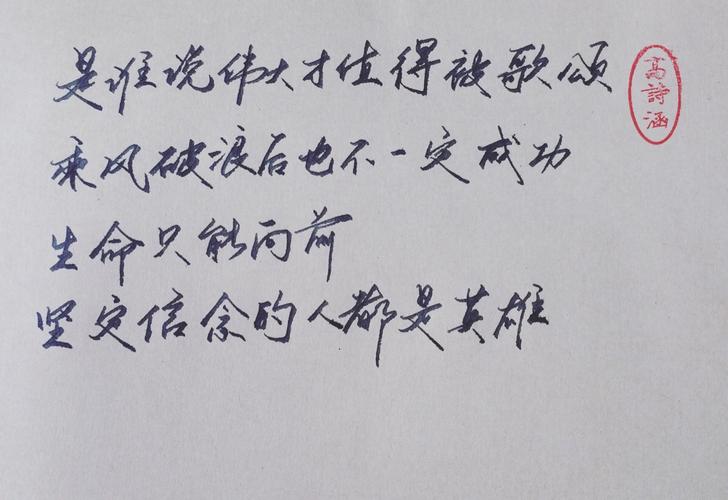 是谁说伟大才值得被歌颂
乘风破浪后也不一定成功
生命只能向前
坚定信念的人都是英雄
高詩涵